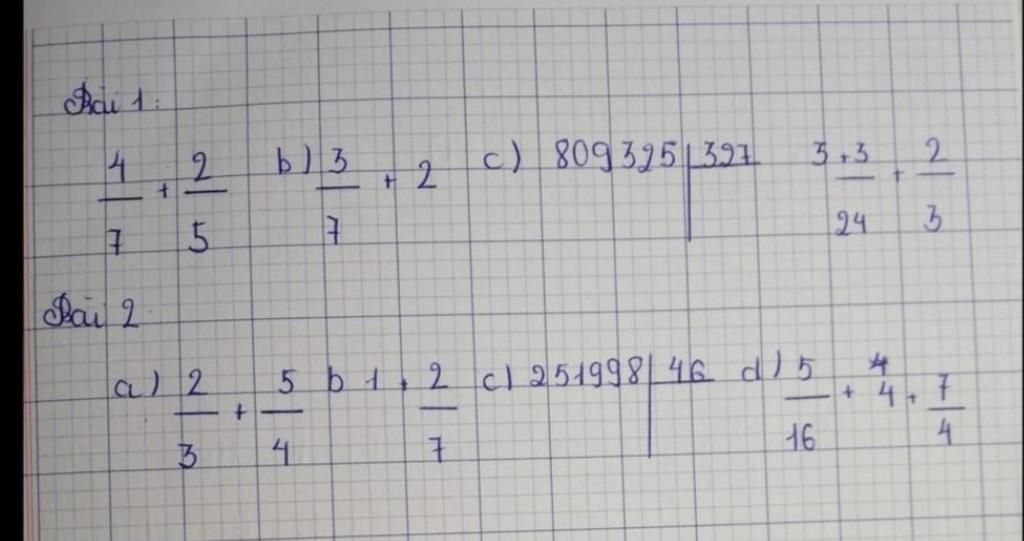 Bài 1:
4/7 + 2/5 b) 3/7 + 2 c) 809325 | 327 3 + 3/24 + 2/3
Bài 2
a) 2/3 + 5/4 b 1 + 2/7 c) 251998 | 46 d) 5/16 + 4 + 7/4